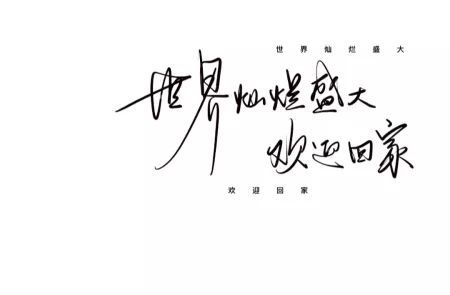 世界灿烂盛大
世界灿烂盛大
欢迎回家
欢迎回家